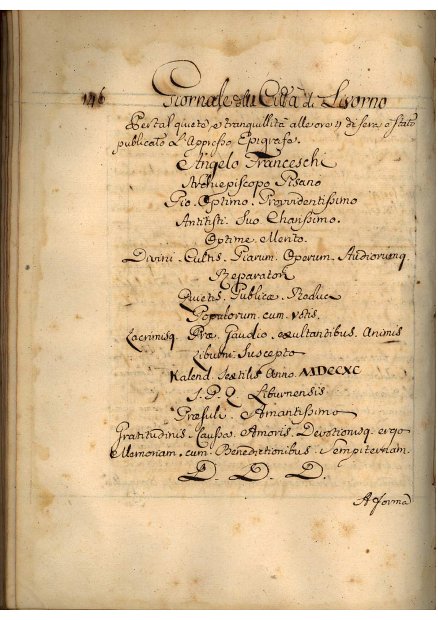 146 Giornale della Città di Livorno
Per tal quiete e tranquillità alle ore 4 di sera è stato
publicato L'Appresso Epigrafe.
Angelo Franceschi
Archiepiscopo Pisano
Pio. Optimo. Provvidentissimo
Antistiti. Suo. Charissimo.
Optime. Merito.
Divini. Cultis. Piarum. Operum. Audiorumq.
Reparatori
Quietis. Publicæ. Reduci
Populorum. cum. vstis.
Lacrimisq. Præ. Gaudio. exultantibus. Animis
Liburni. Suscepto
Kalend. Sextilis. Anno. MDCCXC
S. P. Q. Liburnensis
Præsuli. Amantissimo
Gratitudinis. Caussa. Amoris. Devotionisq. ergo
Memoriam. cum. Benedictionibus. Sempiternam.
D. D. D
A forma